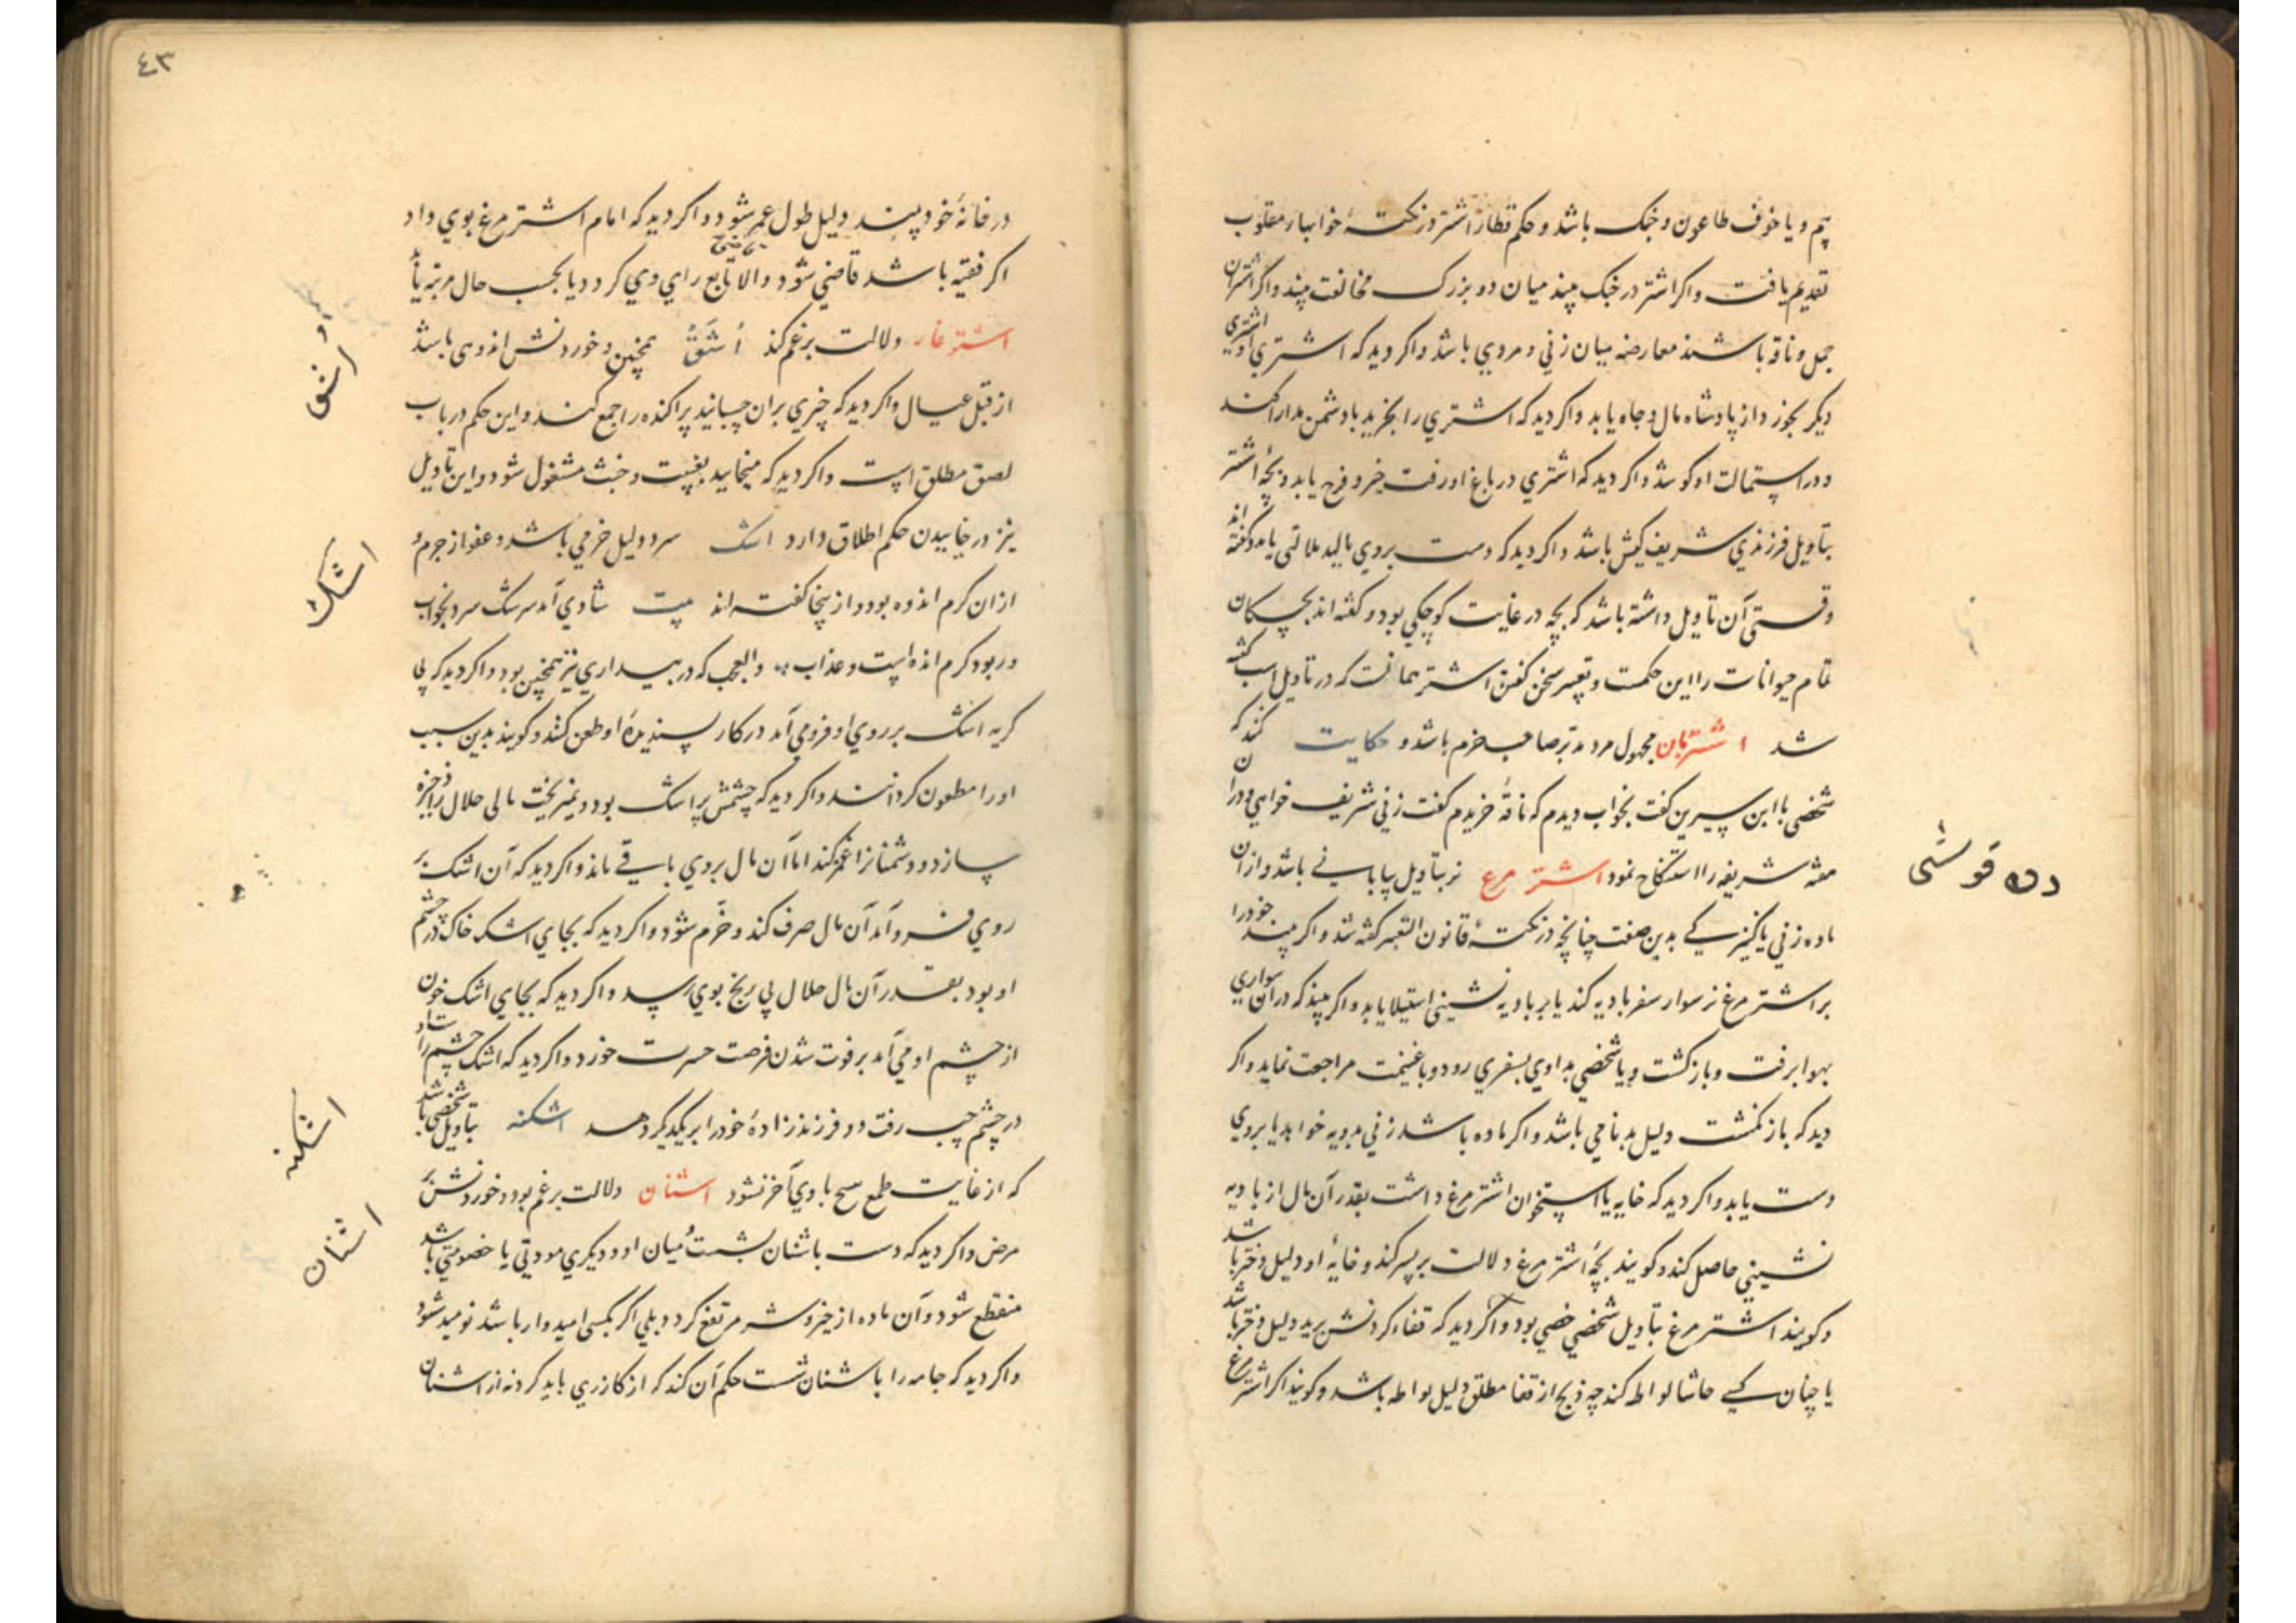 بیم و یا خوف طاعون و جنک باشد و حکم قطار اشتر در نکتهٔ خوابهاء مقلوب
تقدیم یافت و اکر اشتر در جنک بیند میان دو بزرک مخالفت بیند و اکر اشتران
جمل و ناقه باشند معارضه میان زنی و مردی باشد و اکر دید که اشتری از اشتری
دیکر بخورد از پادشاه مال و جاه یابد و اکر دید که اشتری را بخرید با دشمن مدارا کند
و در استمالت او کوشد و اکر دید که اشتری در باغ او رفت خیر و فرح یابد و بچهٔ اشتر
بتاویل فرزندی شریف کیش باشد و اکر دید که دست بروی مالید ملالتی یابد و کفته اند
وقتی آن تاویل داشته باشد که بچه در غایت کوچکی بود و کفته اند بچکان
تمام حیوانات را این حکمست و تعبیر سخن کفتن اشتر همانست که در تاویل اسب کفته
شد اشتربان مجهول مرد مدبر صاحب حزم باشد و حکایت کنند که
شخصی با ابن سیرین کفت بخواب دیدم که ناقهٔ خریدم کفت زنی شریف خواهی و در آن
هفته شریفه را استنکاح نمود اشتر مرغ نر بتاویل بیابانی باشد و از آن
ماده زنی یا کنیزکی بدین صفت چنانچه در نکتهٔ قانون التعبیر کفته شد و اکر بیند خود را
بر اشتر مرغ نر سوار سفر بادیه کند یا بر بادیه نشینی استیلا یابد و اکر بیند که در آن سواری
بهوا بر رفت و باز کشت و یا شخصی بداوی بسفری رود و با غنیمت مراجعت نماید و اکر
دید که باز نکشت دلیل بدنامی باشد و اکر ماده باشد زنی بدویه خواهد یا بروی
دست یابد و اکر دید که خایه یا استخوان اشتر مرغ داشت بقدر آن مال از بادیه
نشینی حاصل کند و کویند بچهٔ اشتر مرغ دلالت بر پسر کند و خایهٔ او دلیل دختر باشد
و کویند اشتر مرغ بتاویل شخصی خصی بود و اکر دید که قفاء کردنش برید دلیل دختر باشد
یا چنان کسی حاشا لواطه کند چه ذبح از قفا مطلق دلیل لواطه باشد و کویند اکر اشتر مرغ
دوه قوشی
٤٣
در خانهٔ خود بیند دلیل طول عمر شود و اکر دید که امام اشتر مرغ بوی داد
اکر فقیه باشد قاضی شود و الا تابع رای وی کردد یا بحسب حال مرتبه یابد
اشترغار دلالت بر غم کند اُشَّقْ همچنین و خوردنش اندوهی باشد
از قبل عیال و اکر دید که چیزی بر آن چسبانید پراکنده را جمع کند و این حکم در باب
لصق مطلق است و اکر دید که میخایید بغیبت و خبث مشغول شود و این تاویل
نیز در خاییدن حکم اطلاق دارد اشک سرد دلیل خرمی باشد و عفو از جرم و
از ان کرم اندوه بود و از ینجا کفته اند بیت شادی آمد سرشک سرد بخواب
در بود کرم اندهست و عذاب و العجب که در بیداری نیز همچنین بود و اکر دید که بی
کریه اشک بر روی او فرو می آمد در کار پسندیدهٔ او طعن کنند و کویند بدین سبب
او را مطعون کردانند و اکر دید که چشمش پر اشک بود و نمیریخت مالی حلال را ذخیره
سازد و دشمنانرا غمز کند اما آن مال بروی باقی ماند و اکر دید که آن اشک بر
روی فرو آمد آن مال صرف کند و خرّم شود و اکر دید که بجای اشک خاک در چشم
او بود بقدر آن مال حلال بی رنج بوی رسد و اکر دید که بجای اشک خون
از چشم او می آمد بر فوت شدن فرصت حسرت خورد و اکر دید که اشک چشم راست او
در چشم چپ رفت دو فرزند زادهٔ خود را بر یکدیکر دهد اشکنه بتاویل شخصی باشد
که از غایت طمع هیچ با وی آخر نشود اشنان دلالت بر غم بود و خوردنش بر
مرض و اکر دید که دست باشنان بشست میان او و دیکری مودتی یا خصومتی باشد
منقطع شود و آن ماده از خیر و شر مرتفع کردد بلی اکر بکسی امیدوار باشد نومید شود
و اکر دید که جامه را باشنان شست حکم آن کند که از کازری یابد کرد نه از اشنان
اشق
اشک
اشکنه
اشنان